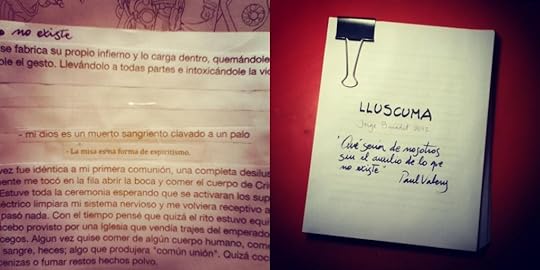 no existe
se fabrica su propio infierno y lo carga dentro, quemándole
ole el gesto. Llevándolo a todas partes e intoxicándole la vid
- mi dios es un muerto sangriento clavado a un palo
- La misa es una forma de espiritismo.
vez fue idéntica a mi primera comunión, una completa desilus
mente me tocó en la fila abrir la boca y comer el cuerpo de Cris
Estuve toda la ceremonia esperando que se activaran los sup
éctrico limpiara mi sistema nervioso y me volviera receptivo a
pasó nada. Con el tiempo pensé que quizá el rito estuvo equi
acebo provisto por una Iglesia que vendía trajes del emperado
cegos. Algun vez quise comer de algún cuerpo humano, come
sangre, heces; algo que produjera "común unión". Quizá coc
cenizas o fumar restos hechos polvo.
LLUSCUMA
Jorge Baradit 2012
"Qué serían de nosotros
sin el auxilio de lo que
no existe"
Paul Valery